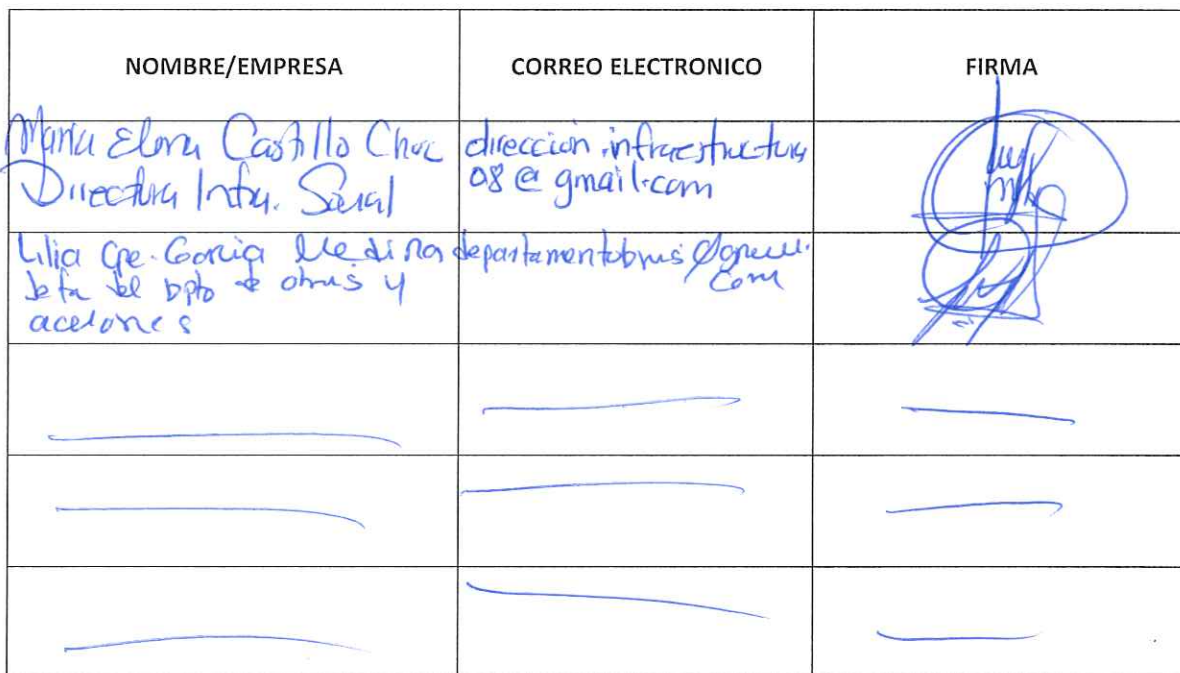 NOMBRE/EMPRESA CORREO ELECTRONICO FIRMA
Maria Elena Castillo Chuc
Directora Infra. Social
direccion.infraestructura
08@gmail.com
Lilia Gpe. Garcia Medina
Jefa del Dpto de obras y
acciones
com